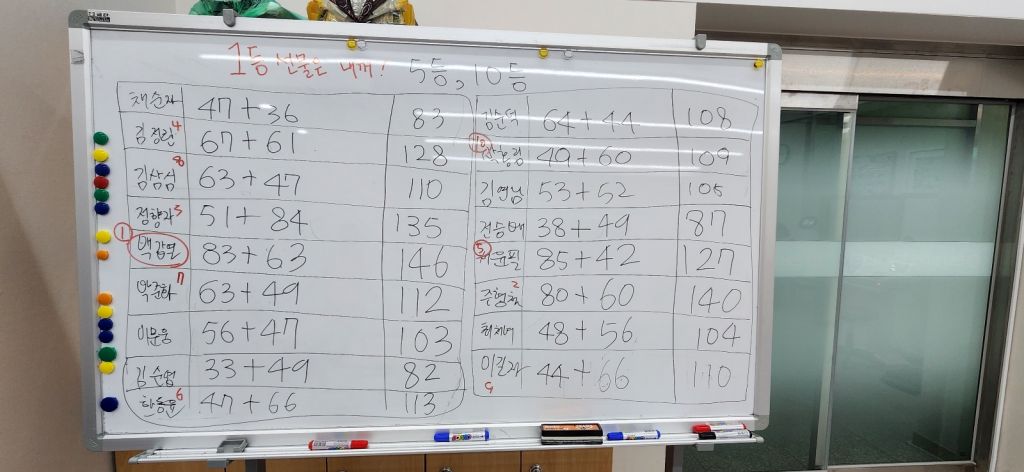 1등 선물은 내꺼! 5등, 10등
채순자 47+36 83
김정란 4 67+61 128
김삼심 8 63+47 110
정향자 3 51+84 135
① 백감연 83+63 146
박준화 7 63+49 112
이문웅 56+47 103
김순범 33+49 82
6 47+66 113
김순덕 64+44 108
⑩ 49+60 109
김연님 53+52 105
전승배 38+49 87
⑤ 서윤필 85+42 127
주형철 2 80+60 140
48+56 104
이길자 9 44+66 110